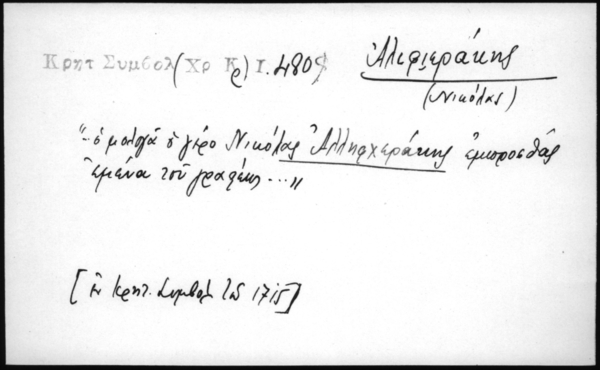 Κρητ Συμβολ (Χρ Κρ) Ι. 480
Ἀλιφιεράκης
(Νικόλας)
"... ὁ γέρο Νικόλας Ἀλληφχεράκης ἐμπροσθὰς
ἐμένα τοῦ γραφέως ..."
[ἐν Κρητ. Συμβολ τοῦ 1715]